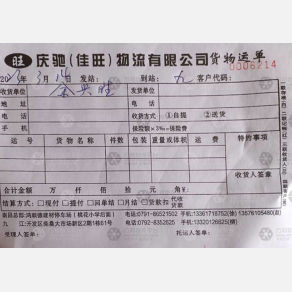 旺 庆驰(佳旺)物流有限公司货物运单
0306214
年3月 日 发站: 到站:九 客户代码:
收货单位 发货单位
地址 电话
电话 收货方式 ①自提 ②送货
手机 保险额×3‰=保险费
运号 货物名称 件数 包装 重量或体积 运费 特约事项
收货人签章
合计金额 万 仟 佰 拾 元 角 ¥.
结算方式:□现付□提付□回单结□月结□货款扣 代收货款
南昌总部:鸿联德建材停车场(桃花小学后面) 电话:0791-86521502 手机:13361718752(徐) 13576105480(袁)
九 江:开发区柴桑大市场新区2栋1单61号 电话:0792-8352625 手机:13320126625(柳)
受理人签单: 托运人签单: